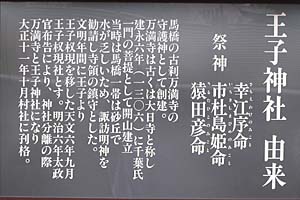 王子神社 由来
祭神
幸江序命
市杵島姫命
猿田彦命
馬橋の古刹万満寺の
守護神として創建。
万満寺は古くは大日寺と称し
建永六年(一二〇六)に千葉氏
一門の菩提として開山建立
当時は馬橋一帯は砂丘で
水が乏しいため、諏訪明神を
勧請し寺領の鎮守とした。
文明年間に王子権現を
王子権現と称す。明治六年太政
官布告により、神社分離の際
万満寺と王子神社になり
大正十一年十月村社に列格。